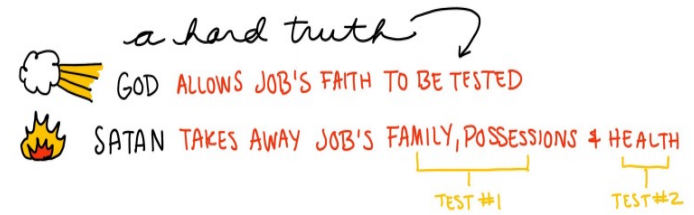 a hard truth
GOD ALLOWS JOB'S FAITH TO BE TESTED
SATAN TAKES AWAY JOB'S FAMILY, POSSESSIONS & HEALTH
TEST #1 TEST #2